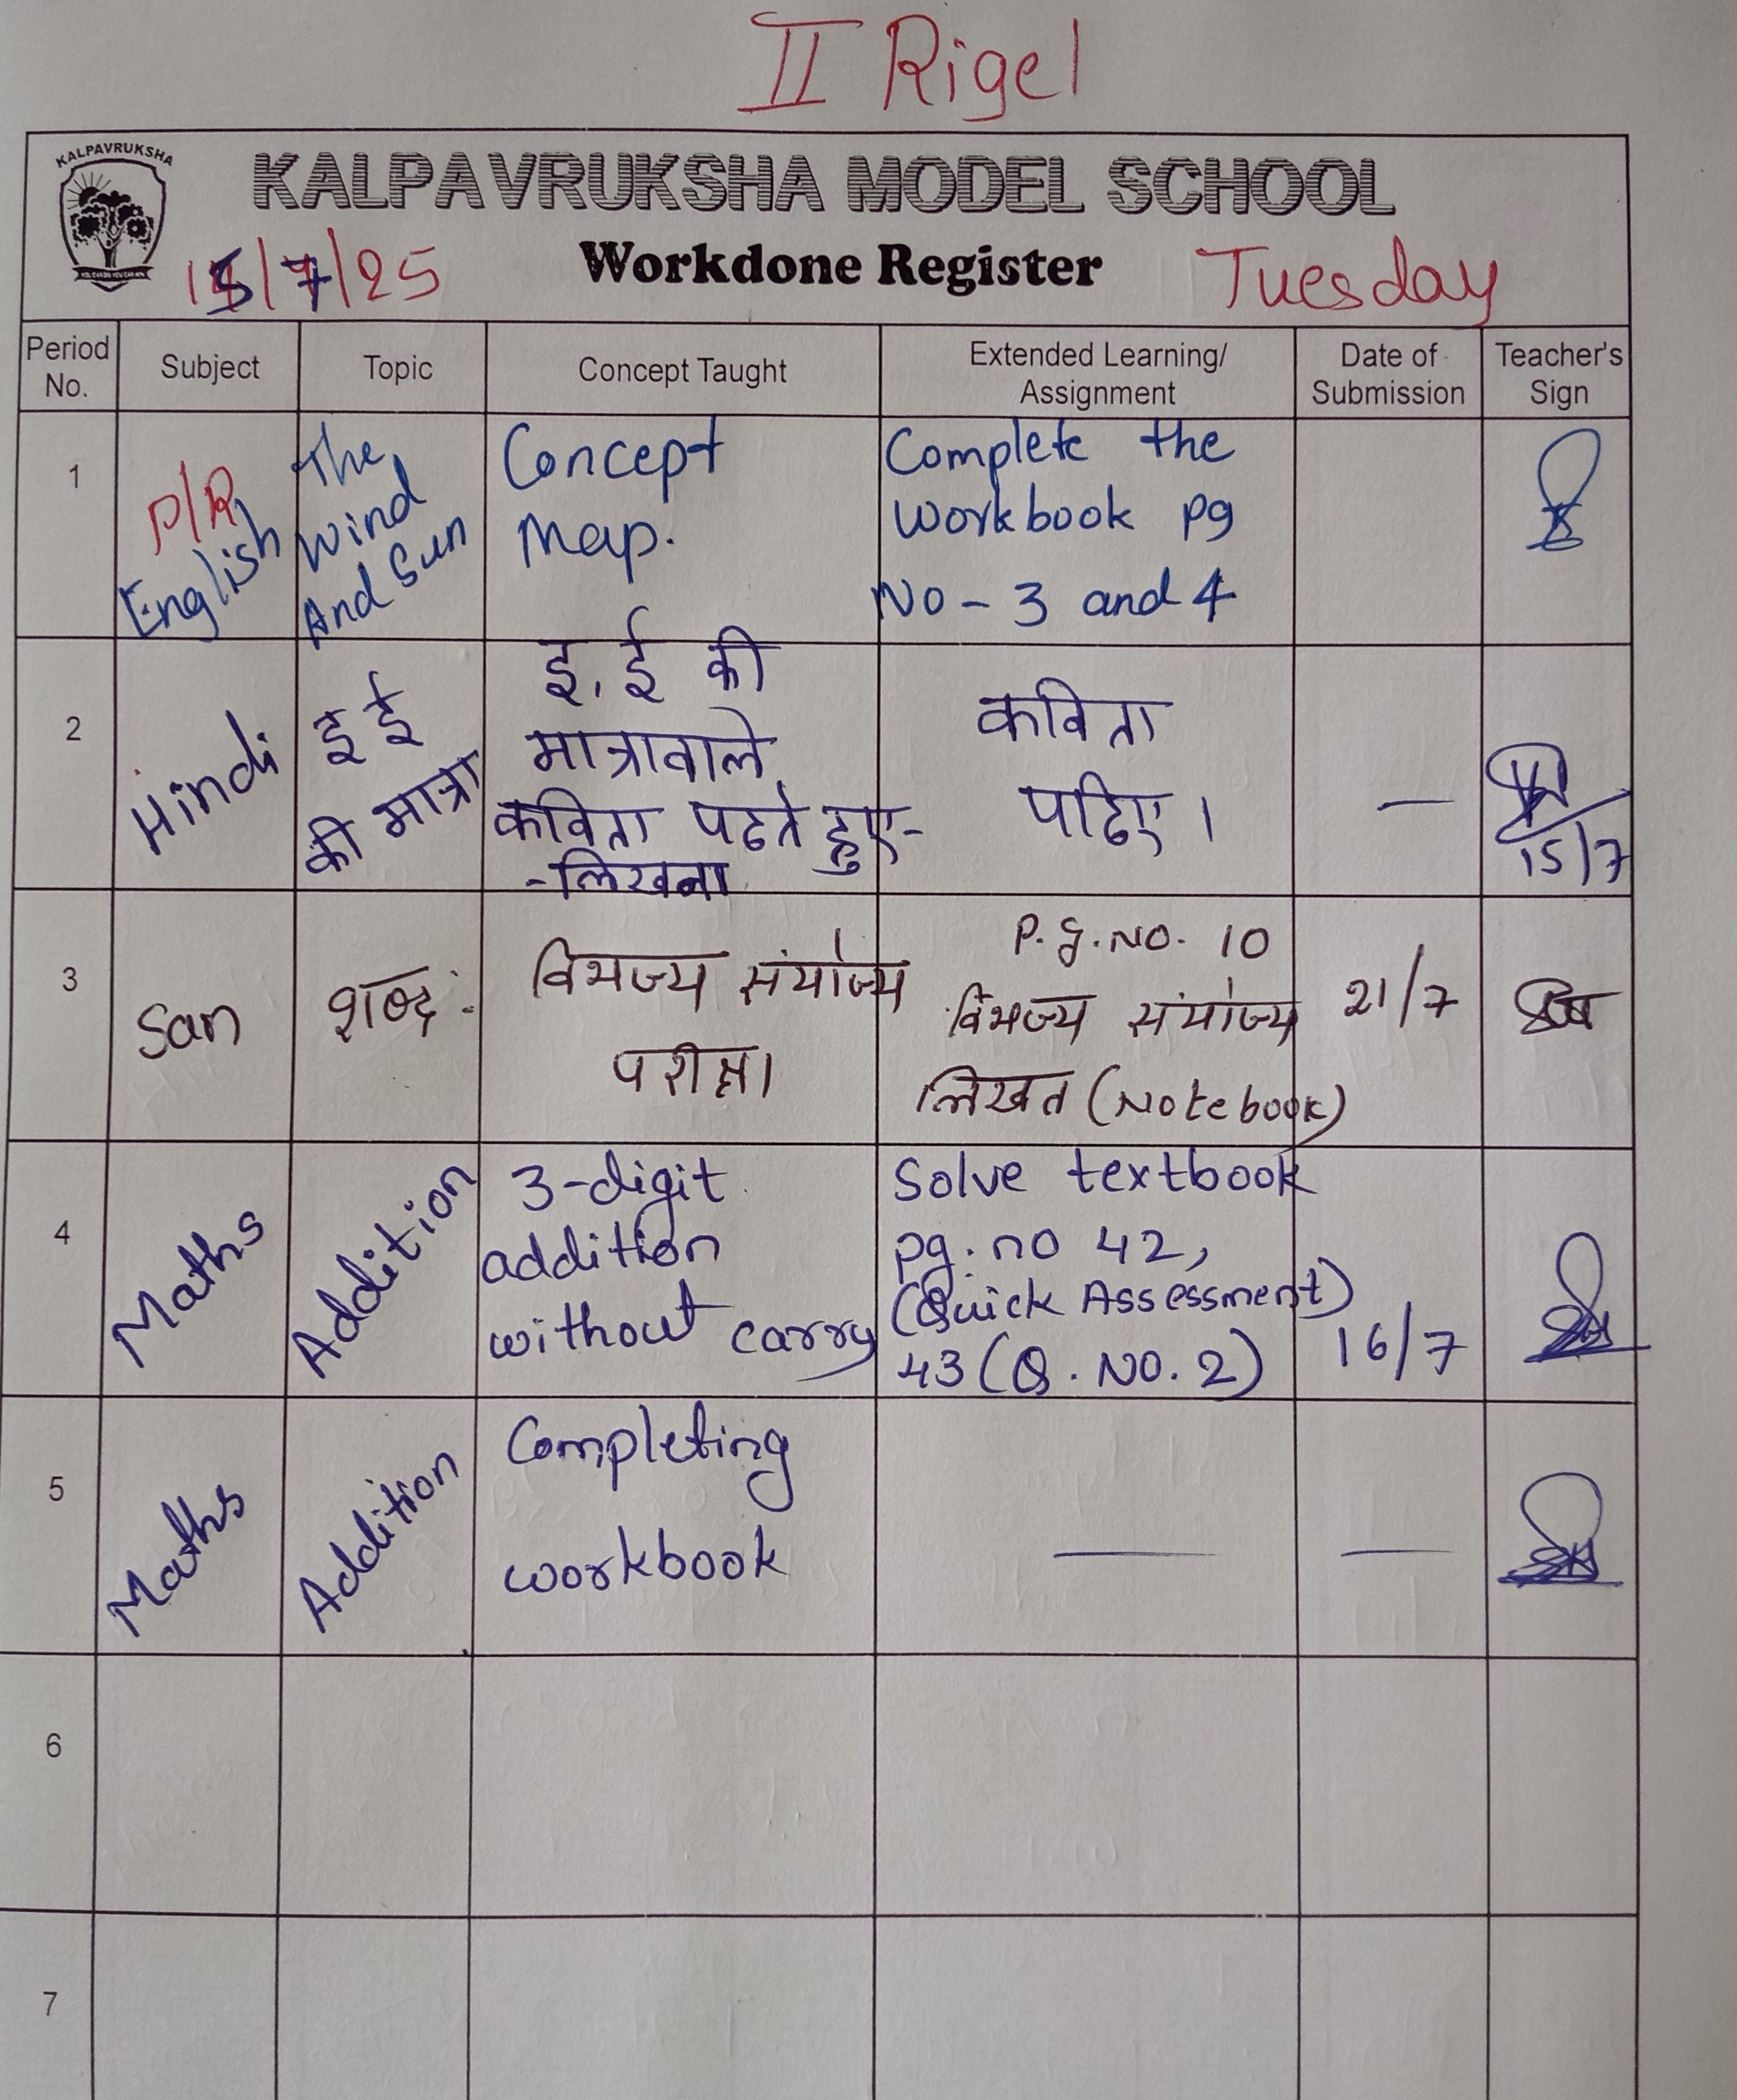 II Rigel
KALPAVRUKSHA
KALPAVRUKSHA MODEL SCHOOL
15/7/25
Workdone Register
Tuesday
Period No.
Subject
Topic
Concept Taught
Extended Learning/
Assignment
Date of
Submission
Teacher's
Sign
1
P/R
English
The
Wind
And Sun
Concept
Map.
Complete the
Workbook pg
No - 3 and 4
2
Hindi
इ ई
की मात्रा
इ, ई की
मात्रावाले
कविता पढते हुए-
-लिखना
कविता
पढिए।
—
15/7
3
San
शब्द:
विभज्य संयोज्य
परीक्षा
P.g.No. 10
विभज्य संयोज्य
लिखत (Notebook)
21/7
4
Maths
Addition
3-digit
addition
without carry
Solve textbook
pg.no 42,
(Quick Assessment)
43 (Q. No. 2)
16/7
5
Maths
Addition
Completing
workbook
—
—
6
7